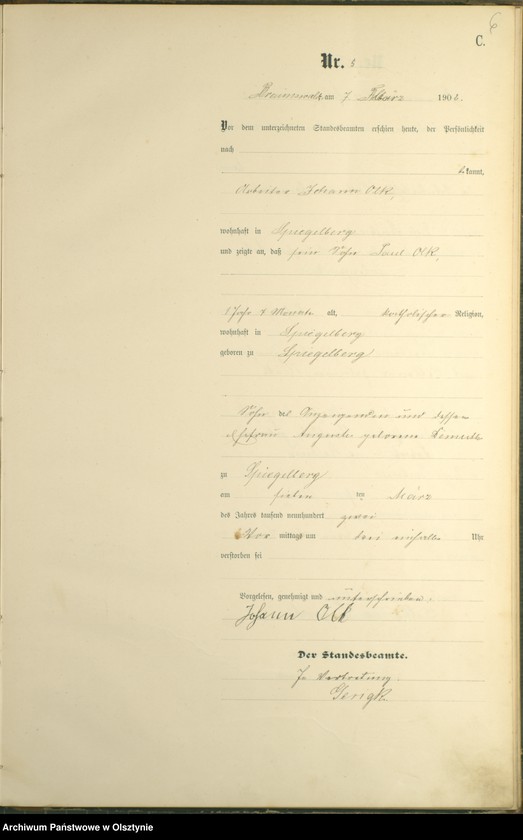 C.
Nr. 5
am 7 März 1902.
Vor dem unterzeichneten Standesbeamten erschien heute, der Persönlichkeit
nach
kannt,
Arbeiter Johann Olk,
wohnhaft in Spiegelberg
und zeigte an, daß sein Sohn Paul Olk,
1 Jahr 4 Monate alt, katholischer Religion,
wohnhaft in Spiegelberg
geboren zu Spiegelberg
Sohn des Anzeigenden und dessen
Ehefrau Auguste geborene
zu Spiegelberg
am sieben ten März
des Jahres tausend neunhundert zwei
Vor mittags um drei einhalb Uhr
verstorben sei
Vorgelesen, genehmigt und unterschrieben.
Johann Olk
Der Standesbeamte.
In Vertretung
Archiwum Państwowe w Olsztynie